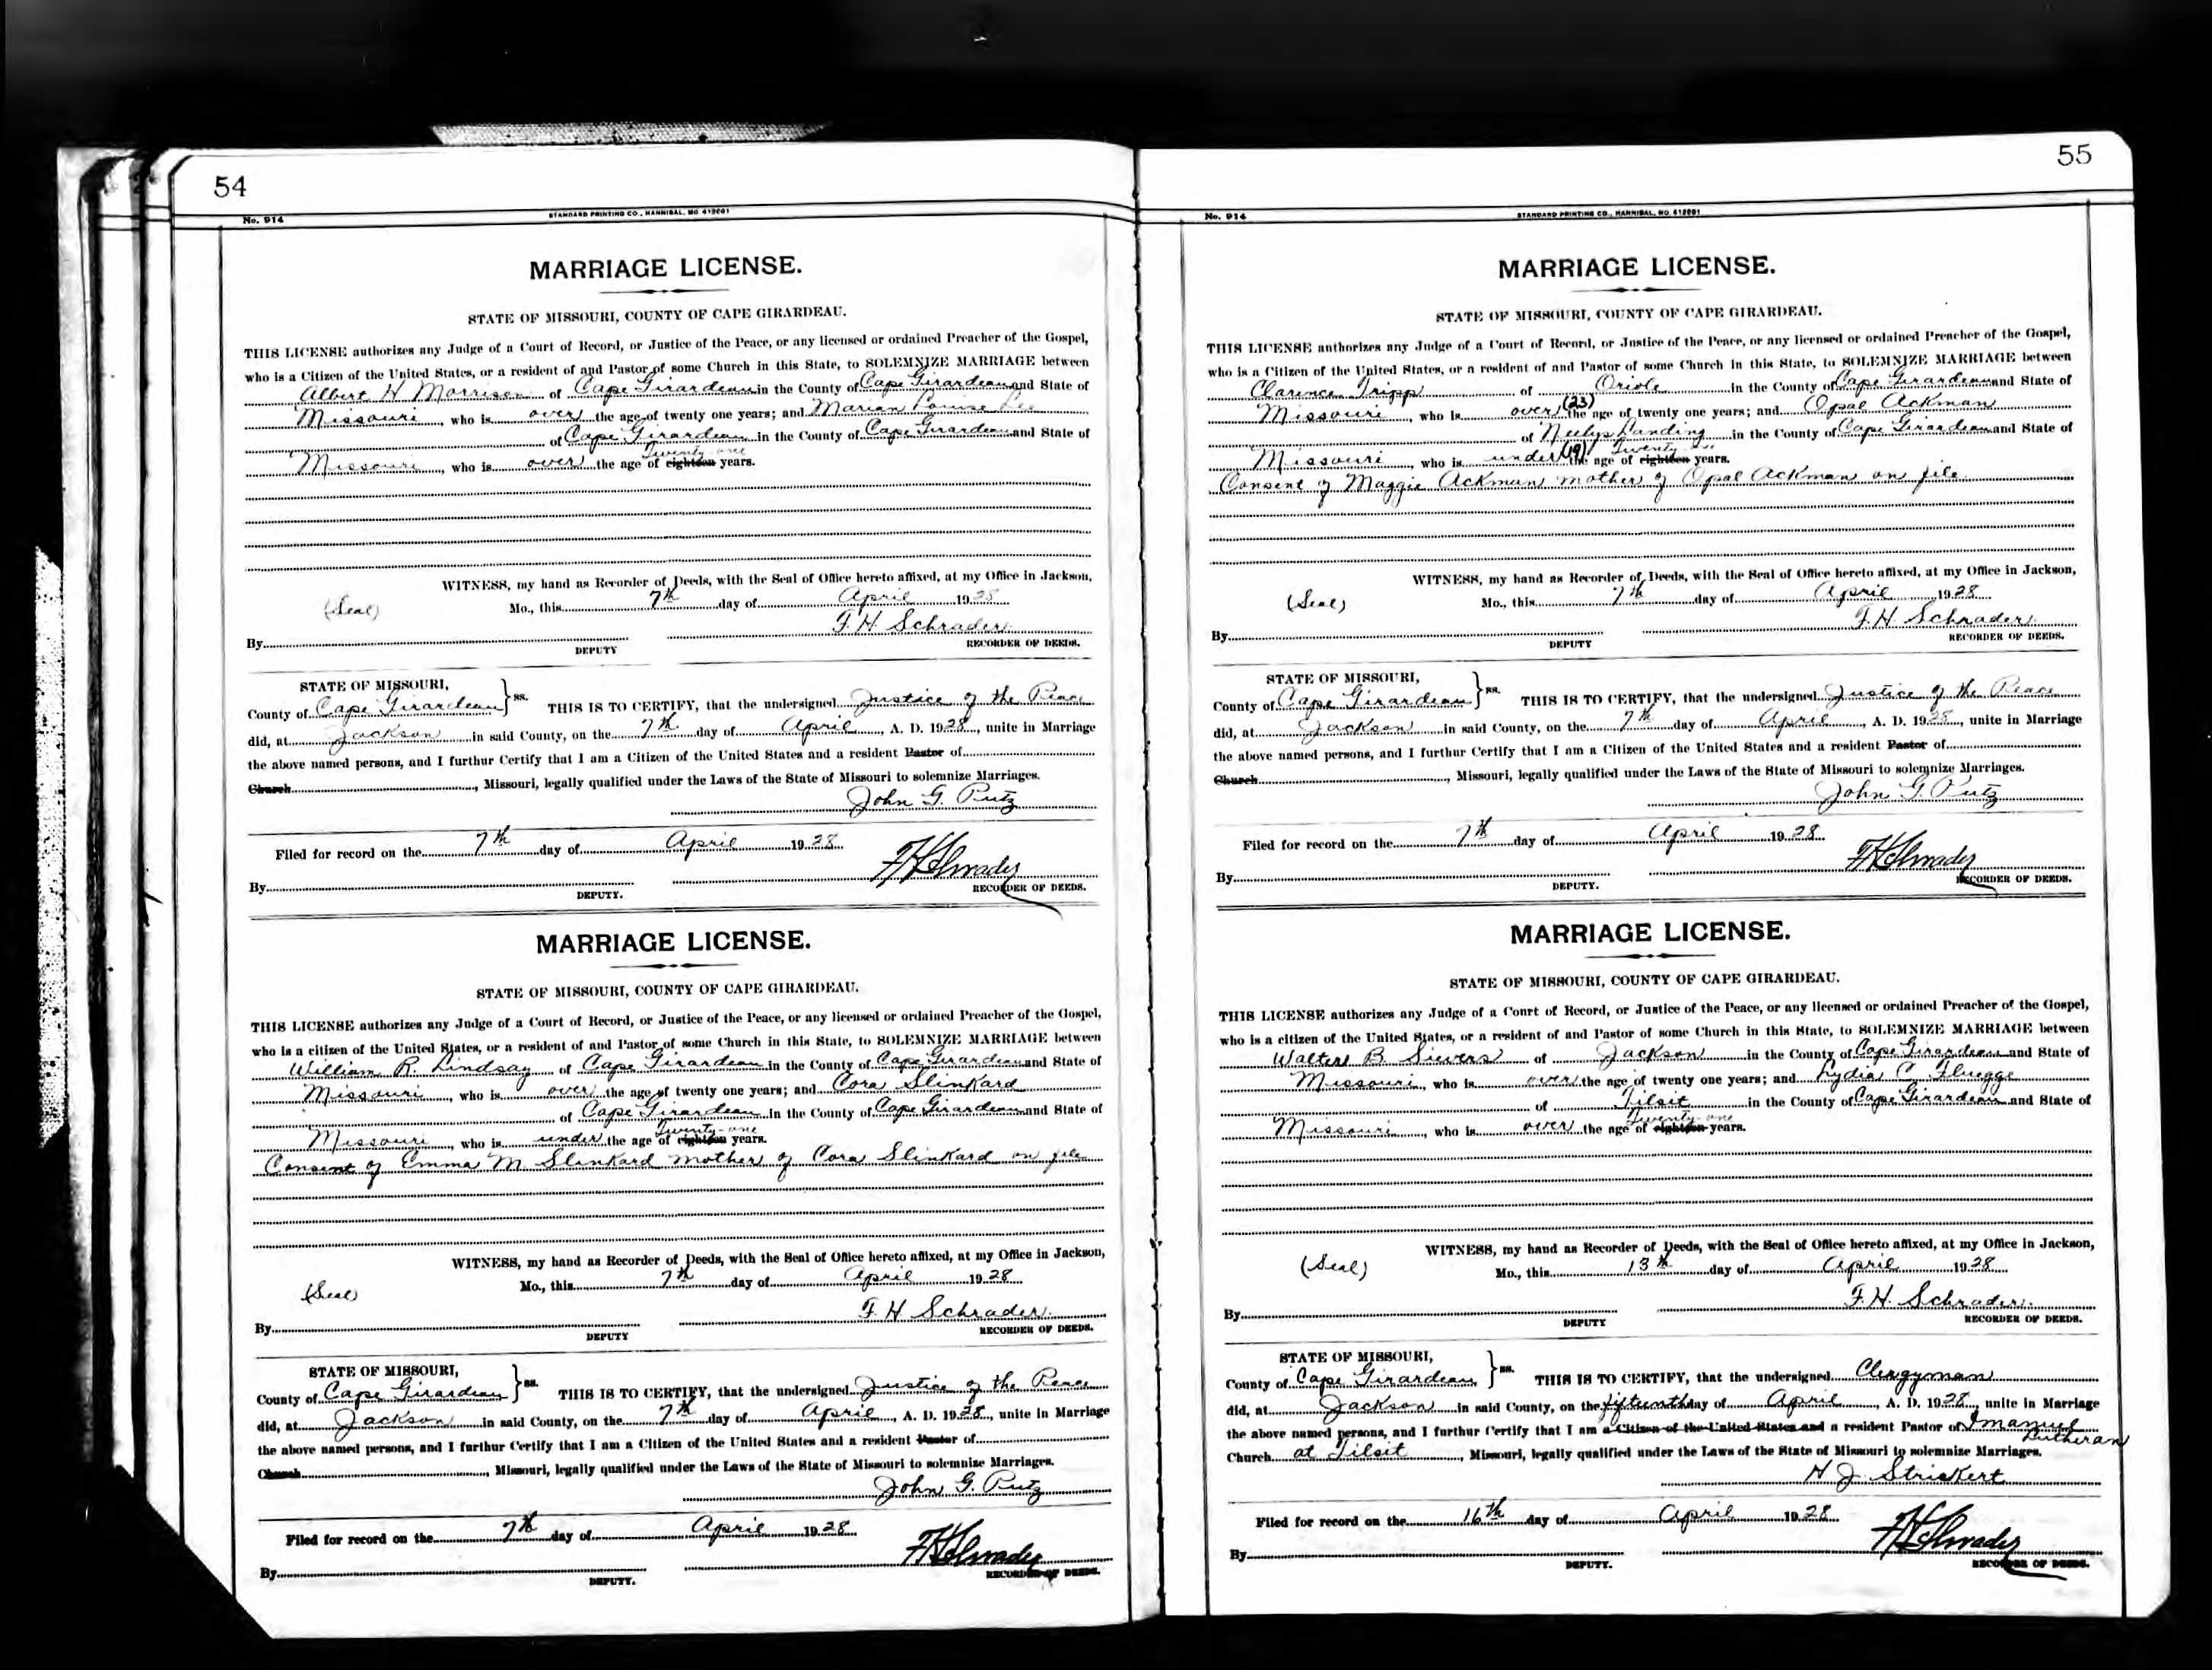 54
No. 914
STANDARD PRINTING CO., HANNIBAL, MO 412001
MARRIAGE LICENSE.
STATE OF MISSOURI, COUNTY OF CAPE GIRARDEAU.
THIS LICENSE authorizes any Judge of a Court of Record, or Justice of the Peace, or any licensed or ordained Preacher of the Gospel,
who is a Citizen of the United States, or a resident of and Pastor of some Church in this State, to SOLEMNIZE MARRIAGE between
Albert H Morrison of Cape Girardeau in the County of Cape Girardeau and State of
Missouri, who is over the age of twenty one years; and Marian Louise Lee
of Cape Girardeau in the County of Cape Girardeau and State of
Twenty-one
Missouri, who is over the age of eighteen years.
WITNESS, my hand as Recorder of Deeds, with the Seal of Office hereto affixed, at my Office in Jackson,
(Seal) Mo., this 7th day of April 1928
F. H Schrader.
By DEPUTY RECORDER OF DEEDS.
STATE OF MISSOURI,
County of Cape Girardeau } ss. THIS IS TO CERTIFY, that the undersigned Justice of the Peace
did, at Jackson in said County, on the 7th day of April, A. D. 1928, unite in Marriage
the above named persons, and I furthur Certify that I am a Citizen of the United States and a resident Pastor of
Church, Missouri, legally qualified under the Laws of the State of Missouri to solemnize Marriages.
John G. Putz
Filed for record on the 7th day of April 1928
F H Schrader
By DEPUTY. RECORDER OF DEEDS.
MARRIAGE LICENSE.
STATE OF MISSOURI, COUNTY OF CAPE GIRARDEAU.
THIS LICENSE authorizes any Judge of a Court of Record, or Justice of the Peace, or any licensed or ordained Preacher of the Gospel,
who is a citizen of the United States, or a resident of and Pastor of some Church in this State, to SOLEMNIZE MARRIAGE between
William R. Lindsay of Cape Girardeau in the County of Cape Girardeau and State of
Missouri, who is over the age of twenty one years; and Cora Slinkard
of Cape Girardeau in the County of Cape Girardeau and State of
Twenty-one
Missouri, who is under the age of eighteen years.
Consent of Emma M. Slinkard mother of Cora Slinkard on file
WITNESS, my hand as Recorder of Deeds, with the Seal of Office hereto affixed, at my Office in Jackson,
(Seal) Mo., this 7th day of April 1928
F. H Schrader.
By DEPUTY RECORDER OF DEEDS.
STATE OF MISSOURI,
County of Cape Girardeau } ss. THIS IS TO CERTIFY, that the undersigned Justice of the Peace
did, at Jackson in said County, on the 7th day of April, A. D. 1928, unite in Marriage
the above named persons, and I furthur Certify that I am a Citizen of the United States and a resident Pastor of
Church, Missouri, legally qualified under the Laws of the State of Missouri to solemnize Marriages.
John G. Putz
Filed for record on the 7th day of April 1928
F H Schrader
By DEPUTY. RECORDER OF DEEDS.
55
No. 914
STANDARD PRINTING CO., HANNIBAL, MO 412001
MARRIAGE LICENSE.
STATE OF MISSOURI, COUNTY OF CAPE GIRARDEAU.
THIS LICENSE authorizes any Judge of a Court of Record, or Justice of the Peace, or any licensed or ordained Preacher of the Gospel,
who is a Citizen of the United States, or a resident of and Pastor of some Church in this State, to SOLEMNIZE MARRIAGE between
Clarence Tripp of Oriole in the County of Cape Girardeau and State of
Missouri, who is over (23) the age of twenty one years; and Opal Ackman
of Neelys Landing in the County of Cape Girardeau and State of
Missouri, who is under (19) the age of eighteen years.
Consent of Maggie Ackman mother of Opal Ackman on file.
WITNESS, my hand as Recorder of Deeds, with the Seal of Office hereto affixed, at my Office in Jackson,
(Seal) Mo., this 7th day of April 1928
F. H. Schrader.
By DEPUTY RECORDER OF DEEDS.
STATE OF MISSOURI,
County of Cape Girardeau } ss. THIS IS TO CERTIFY, that the undersigned Justice of the Peace
did, at Jackson in said County, on the 7th day of April, A. D. 1928, unite in Marriage
the above named persons, and I furthur Certify that I am a Citizen of the United States and a resident Pastor of
Church, Missouri, legally qualified under the Laws of the State of Missouri to solemnize Marriages.
John G. Putz
Filed for record on the 7th day of April 1928
F H Schrader
By DEPUTY. RECORDER OF DEEDS.
MARRIAGE LICENSE.
STATE OF MISSOURI, COUNTY OF CAPE GIRARDEAU.
THIS LICENSE authorizes any Judge of a Court of Record, or Justice of the Peace, or any licensed or ordained Preacher of the Gospel,
who is a citizen of the United States, or a resident of and Pastor of some Church in this State, to SOLEMNIZE MARRIAGE between
Walter B. Sievers of Jackson in the County of Cape Girardeau and State of
Missouri, who is over the age of twenty one years; and Lydia C Fluegge
of Tilsit in the County of Cape Girardeau and State of
Twenty-one
Missouri, who is over the age of eighteen years.
WITNESS, my hand as Recorder of Deeds, with the Seal of Office hereto affixed, at my Office in Jackson,
(Seal) Mo., this 13th day of April 1928
F. H. Schrader.
By DEPUTY RECORDER OF DEEDS.
STATE OF MISSOURI,
County of Cape Girardeau } ss. THIS IS TO CERTIFY, that the undersigned Clergyman
did, at Jackson in said County, on the fifteenth day of April, A. D. 1928, unite in Marriage
the above named persons, and I furthur Certify that I am a Citizen of the United States and a resident Pastor of Imanuel
Lutheran
Church at Tilsit, Missouri, legally qualified under the Laws of the State of Missouri to solemnize Marriages.
H J. Strickert
Filed for record on the 16th day of April 1928
F H Schrader
By DEPUTY. RECORDER OF DEEDS.